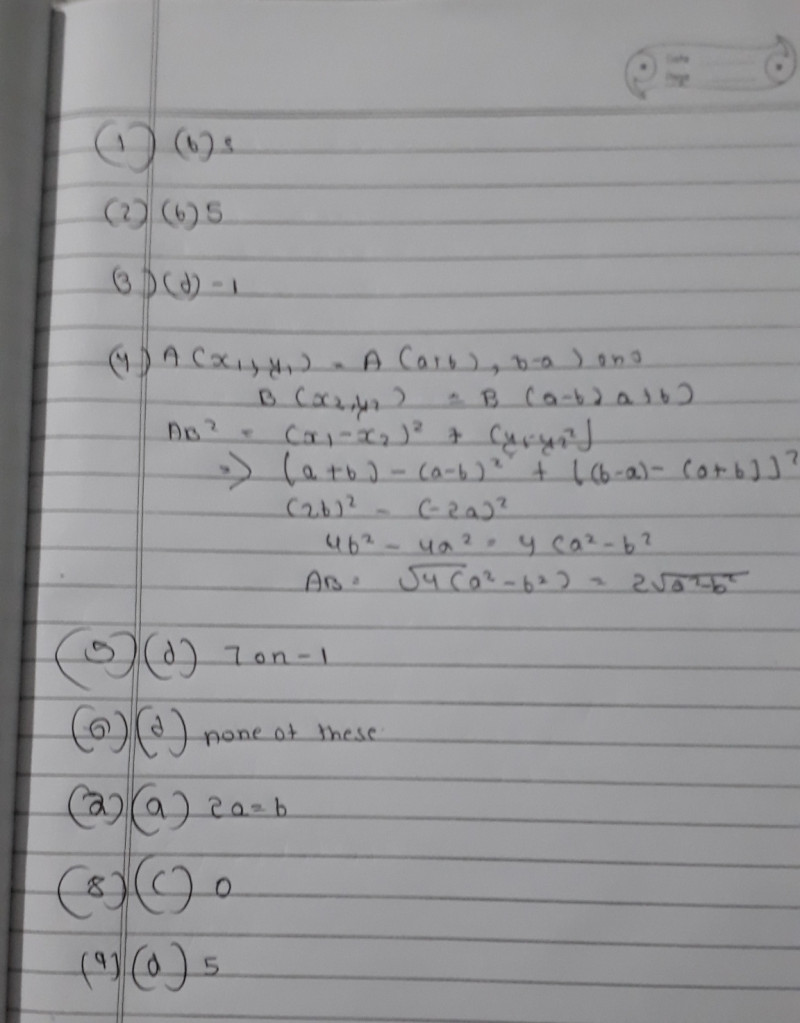 (1) (b) s
(2) (b) 5
(3) (d) -1
(4) A (x₁, y₁) = A (a+b), b-a) and
B (x₂, y₂) = B (a-b, a+b)
AB² = (x₁-x₂)² + (y₁-y₂²]
=> (a+b) - (a-b)² + [(b-a) - (a+b]]²
(2b)² - (-2a)²
4b² - 4a² = 4 (a² - b²
AB = √4(a² - b²) = 2√a²-b²
(5) (d) 7 on -1
(6) (d) none of these
(a) (a) 2a=b
(8) (C) 0
(9) (d) 5